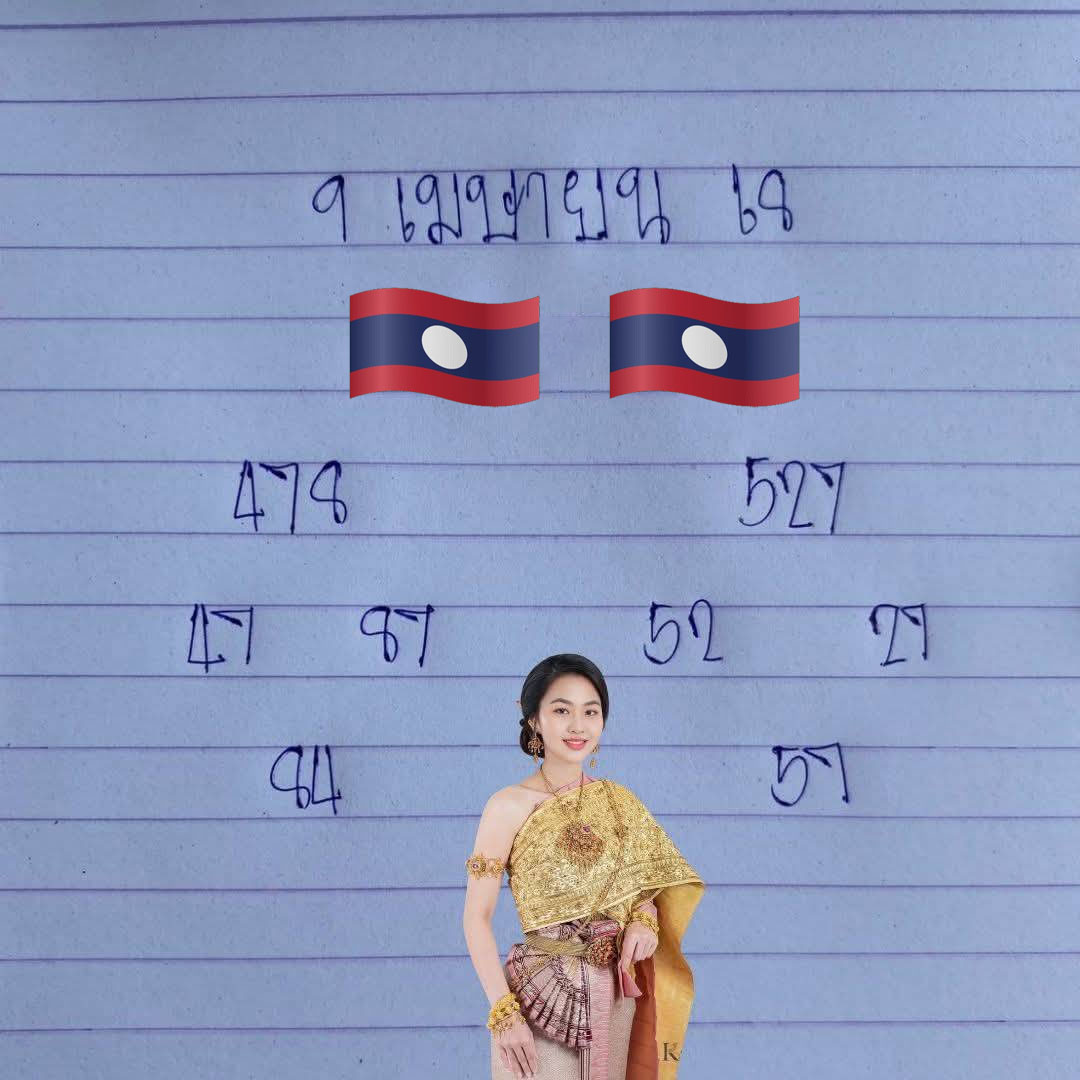 9 เมษายน 68
478 527
47 87 52 27
84 57
K